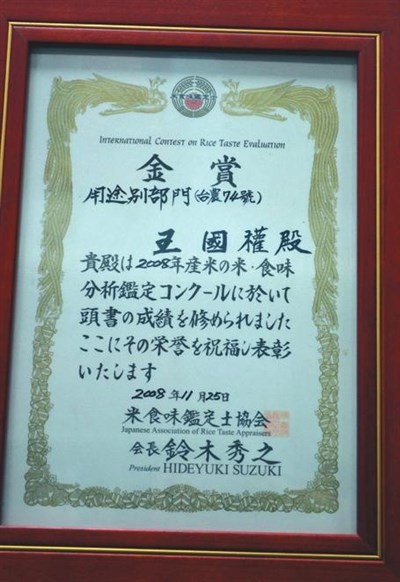 International Contest on Rice Taste Evaluation
金賞
用途別部門(台農74號)
王國權殿
貴殿は2008年産米の米・食味
分析鑑定コンクールに於いて
頭書の成績を修められました
ここにその栄誉を祝福し表彰
いたします
2008年11月25日
米食味鑑定士協会
Japanese Association of Rice Taste Appraisers
会長 鈴木秀之
President HIDEYUKI SUZUKI